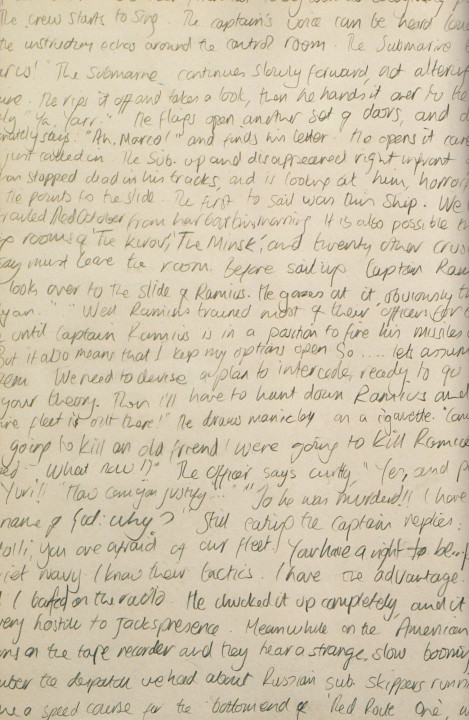 The crew starts to sing. The captain's voice can be heard
the instructory echos around the control room. The Submarine
The Submarine continues slowly forward, not
He rips it off and takes a look, then he hands it over to the
"Ya, Yarr." He flaps open another set of doors, and
says "Ah, Marco!" and finds his letter. He opens it
just called in. The Sub. up and disappeared right infront
stopped dead in his tracks, and is looking at him,
He points to the slide. The first to sail was this ship. We
trailed Red October from her last this morning It is also possible
'The Kurov', 'The Minsk', and twenty other
must leave the room. Before said up Captain
look over to the slide of Ramius. He gazes at it, obviously
"Well Ramius trained most of their officers for
until Captain Ramius is in a position to fire his missiles.
But it also means that I keep my options open So.... lets
We need to devise a plan to intercode, ready to go
your theory. Then I'll have to hunt down Ramius and
fleet is out there!" He draws manicley on a cigarette.
going to kill an old friend! We're going to kill
"What now!?" The officer says curtly, "Yes, and
Yuri!! "How can you justify...." "So he was murdered!! I have
name of God: why? Still eating the captain replies:
you are afraid of our fleet! You have a right to be.
navy I know their tactics. I have the advantage.
I on the radio. He chucked it up completely, and it
very hostile to Jacks presence. Meanwhile on the American
on the tape recorder and they hear a strange, slow
the despatch we had about Russian sub. skippers
a speed course for the bottom end of 'Red Route One,